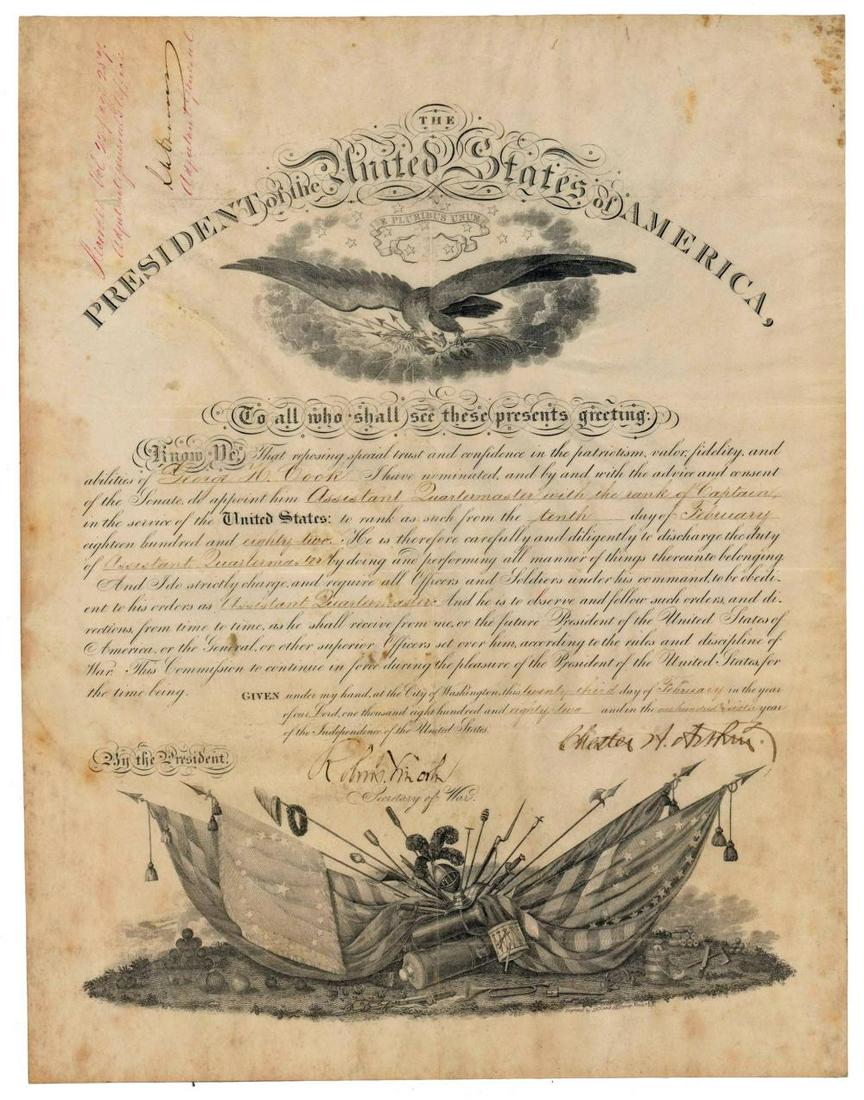 THE
PRESIDENT of the United States of AMERICA,
E PLURIBUS UNUM
To all who shall see these presents greeting:
Know Ye, That reposing special trust and confidence in the patriotism, valor, fidelity, and
abilities of George H. Cook I have nominated, and by and with the advice and consent
of the Senate, do appoint him Assistant Quartermaster with the rank of Captain,
in the service of the United States: to rank as such from the tenth day of February
eighteen hundred and eighty-two. He is therefore carefully and diligently to discharge the duty
of Assistant Quartermaster by doing and performing all manner of things thereunto belonging
And I do strictly charge, and require all Officers and Soldiers under his command, to be obedi-
ent to his orders as Assistant Quartermaster. And he is to observe and follow such orders, and di-
rections, from time to time, as he shall receive from me, or the future President of the United States of
America, or the General, or other superior Officers set over him, according to the rules and discipline of
War. This Commission to continue in force during the pleasure of the President of the United States, for
the time being.
GIVEN under my hand, at the City of Washington, this twenty third day of February in the year
of our Lord, one thousand eight hundred and eighty two and in the one hundred & sixth year
of the Independence of the United States.
Chester A. Arthur.
By the President:
Secretary of War.
Adjutant General's Office
Adjutant General